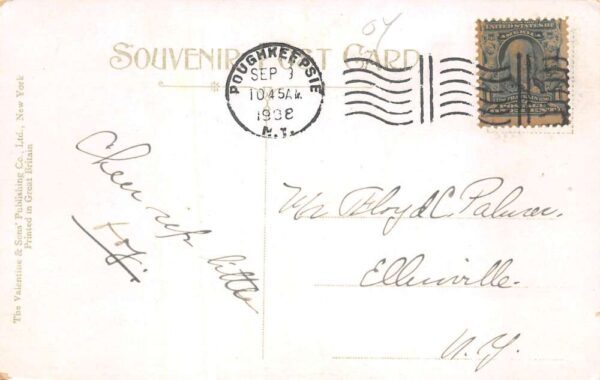 07
SOUVENIR POST CARD
POUGHKEEPSIE
SEP 3
10 45 AM
1908
N.Y.
UNITED STATES OF
The Valentine & Sons' Publishing Co., Ltd., New York
Printed in Great Britain
Cheer up little
Mr Floyd C. Palmer.
Ellenville.
N.Y.